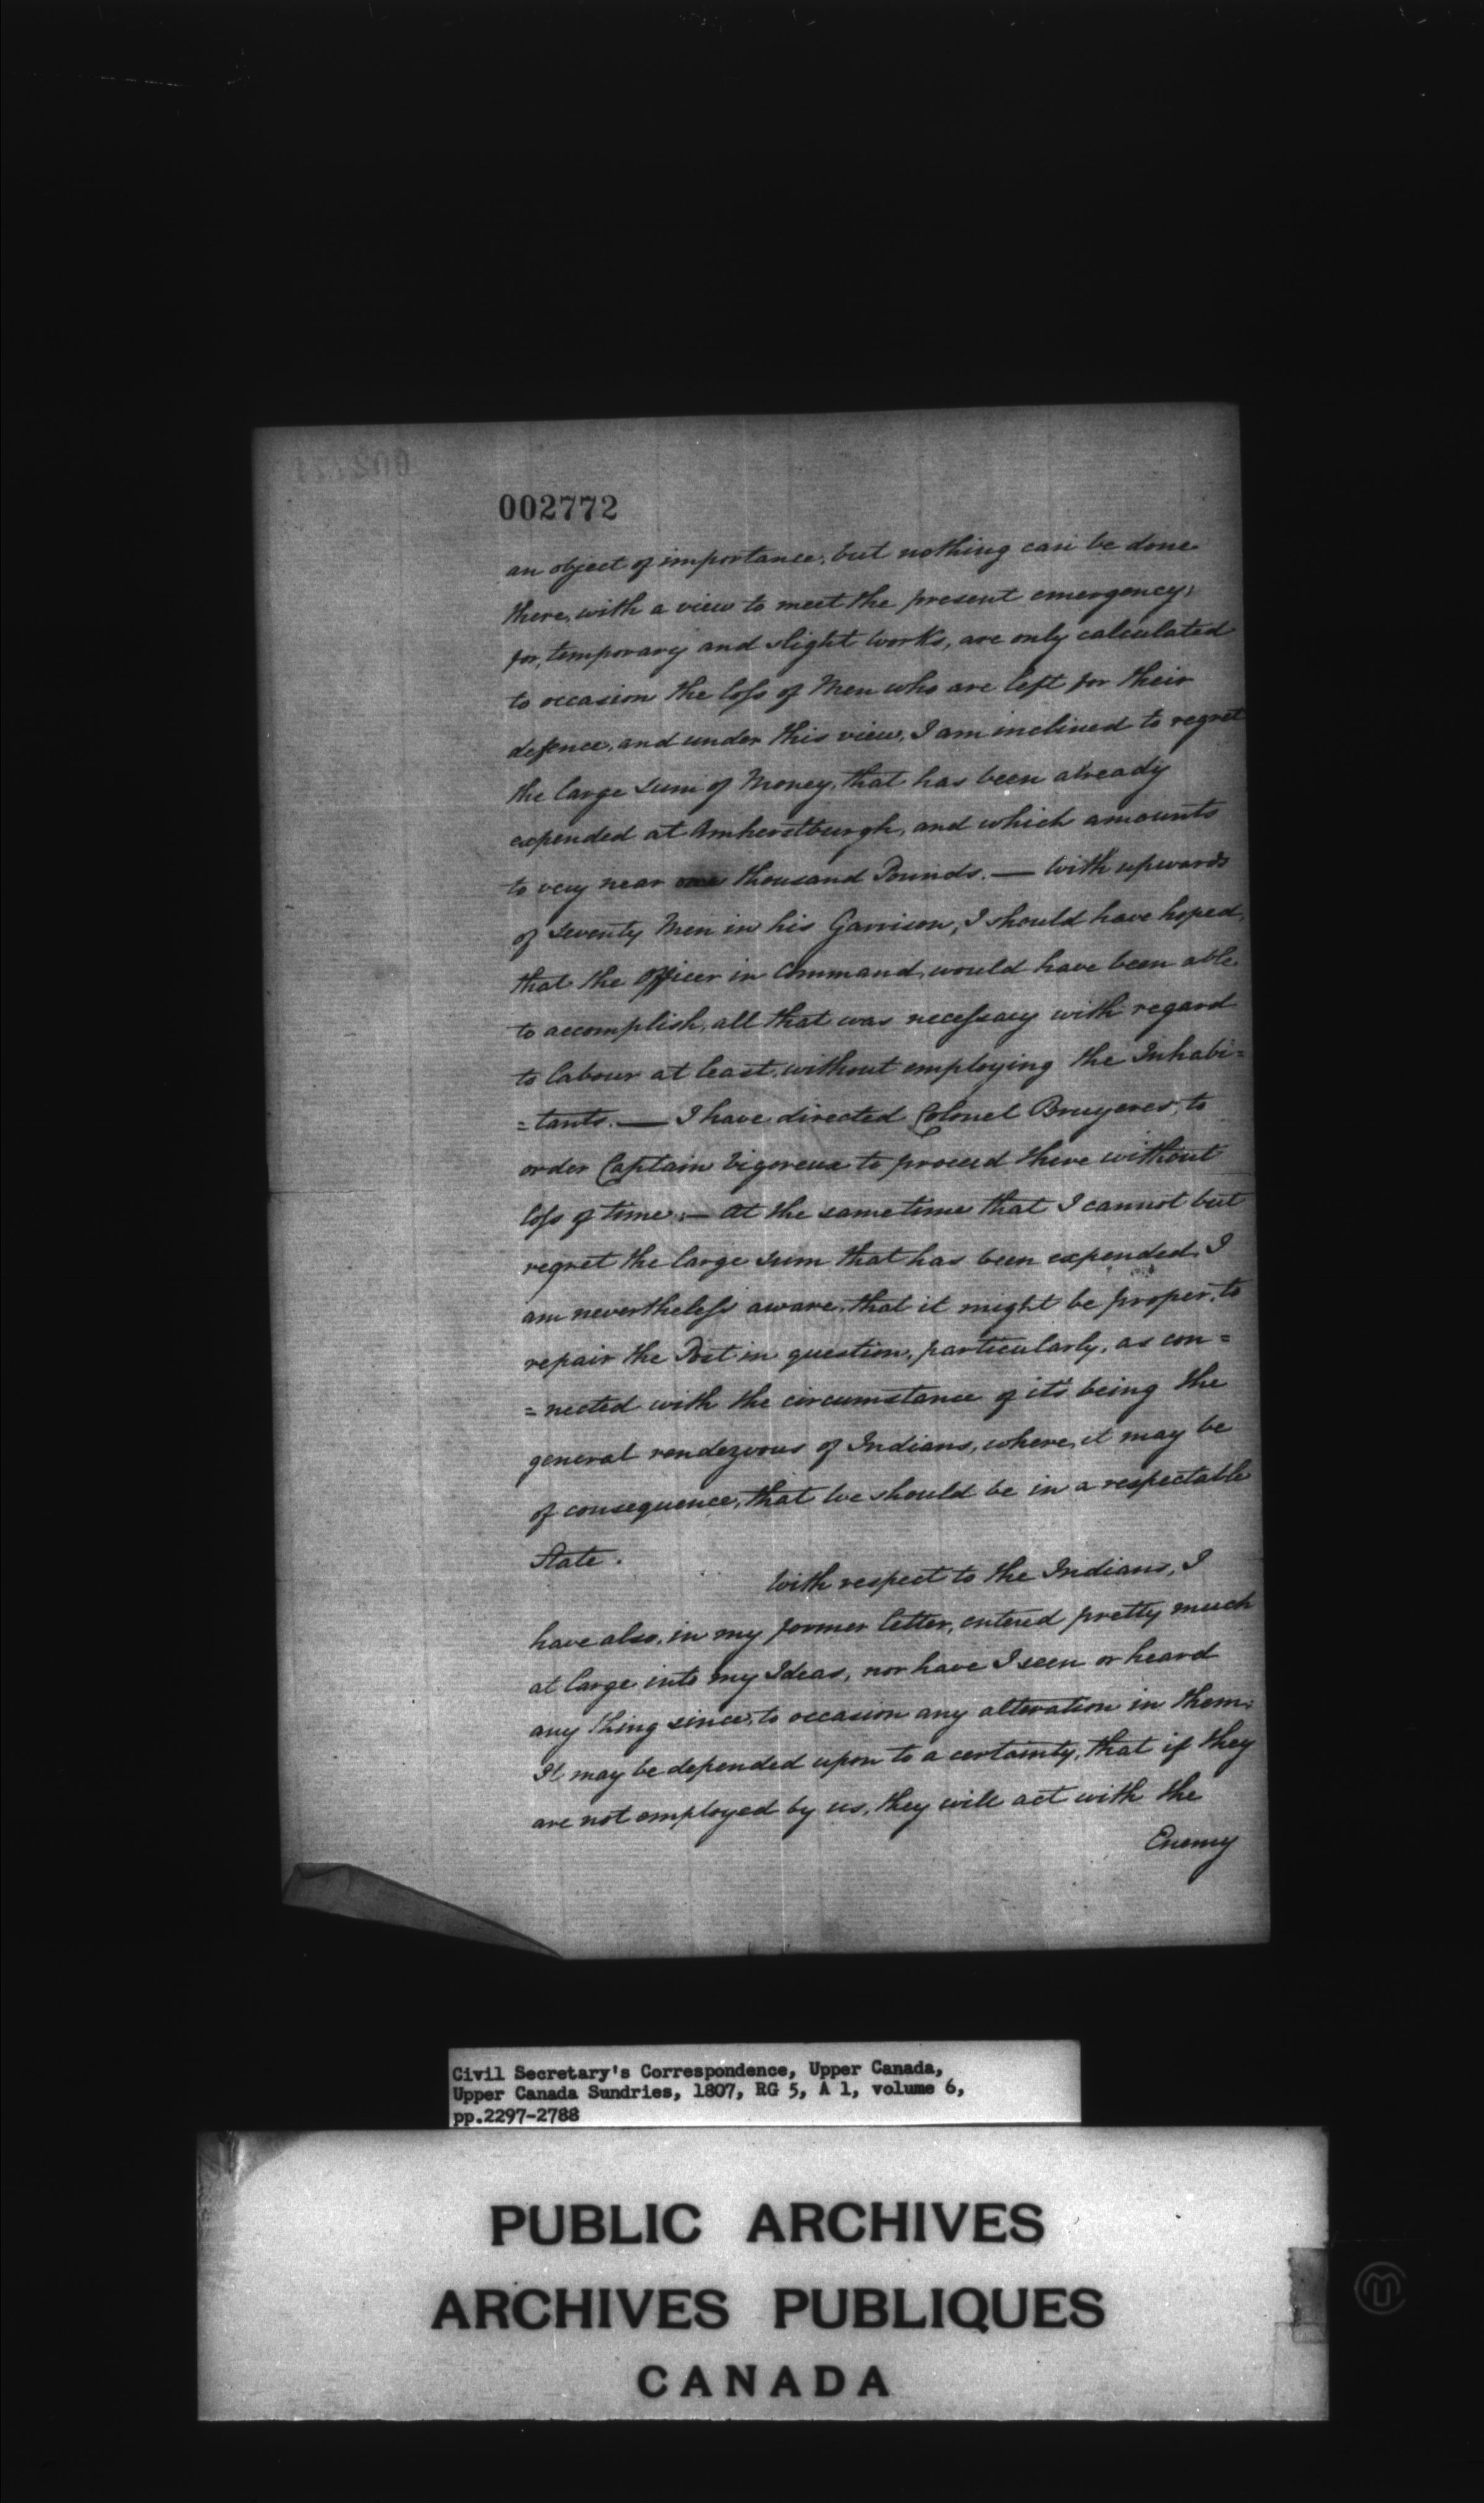 002772
an object of importance, but nothing can be done
there, with a view to meet the present emergency;
for, temporary and slight works, are only calculated
to occasion the loſs of Men who are left for their
defence, and under this view, I am inclined to regret
the large sum of Money, that has been already
expended at Amherstburgh, and which amounts
to very near one thousand Pounds. — With upwards
of seventy Men in his Garrison, I should have hoped,
that the Officer in Command, would have been able
to accomplish, all that was neceſsary with regard
to labour at least, without employing the Inhabi=
=tants. — I have directed Colonel Bruyeres, to
order Captain Vigoreux to proceed there without
loſs of time; — At the same time that I cannot but
regret the large sum that has been expended, I
am nevertheleſs aware, that it might be proper, to
repair the Post in question, particularly, as con=
=nected with the circumstance of it's being the
general rendezvous of Indians, where, it may be
of consequence, that we should be in a respectable
State.
With respect to the Indians, I
have also, in my former letter, entered pretty much
at large into my Ideas, nor have I seen or heard
any thing since, to occasion any alteration in them;
It may be depended upon to a certainty, that if they
are not employed by us, they will act with the
Enemy
Civil Secretary's Correspondence, Upper Canada,
Upper Canada Sundries, 1807, RG 5, A 1, volume 6,
pp.2297-2788
PUBLIC ARCHIVES
ARCHIVES PUBLIQUES
CANADA